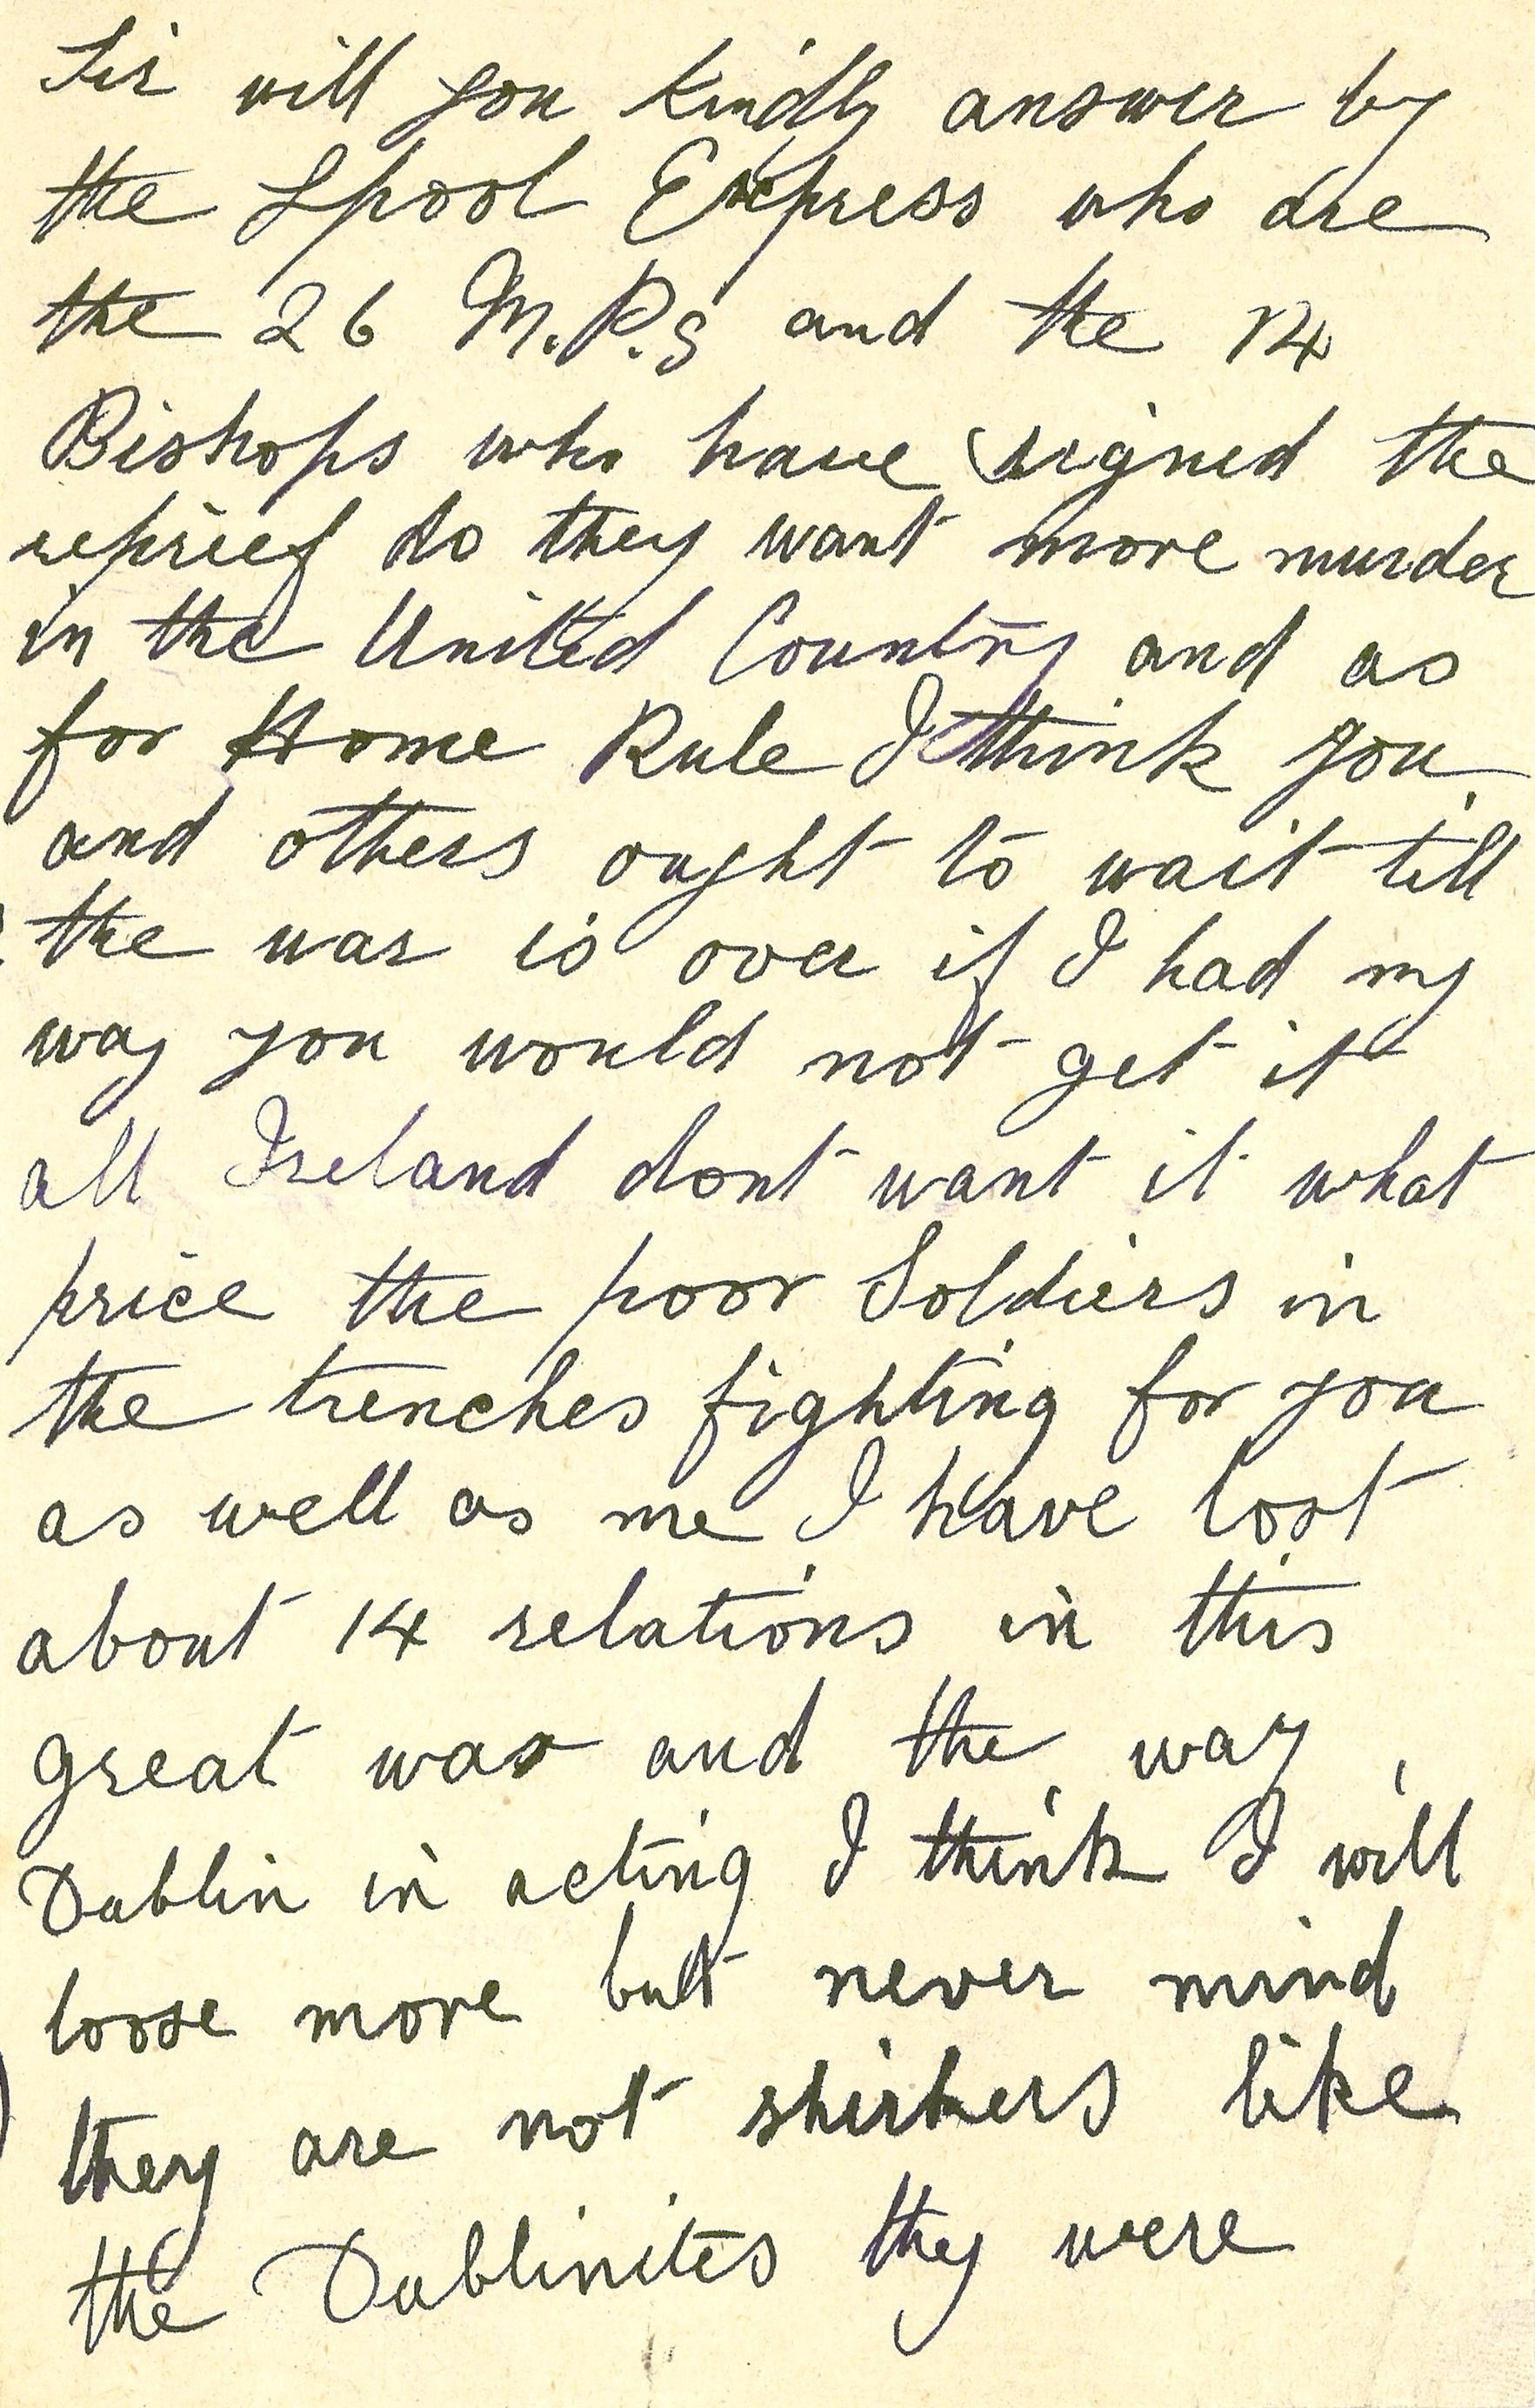 Sir will you kindly answer by
the Lpool Express who are
the 26 M.P.s and the 14
Bishops who have signed the
reprief do they want more murder
in the United Country and as
for Home Rule I think you
and others ought to wait till
the war is over if I had my
way you would not get it
all Ireland dont want it what
price the poor Soldiers in
the trenches fighting for you
as well as me I have lost
about 14 relations in this
great war and the way
Dublin in acting I think I will
loose more but never mind
they are not shirkers like
the Dublinites they were